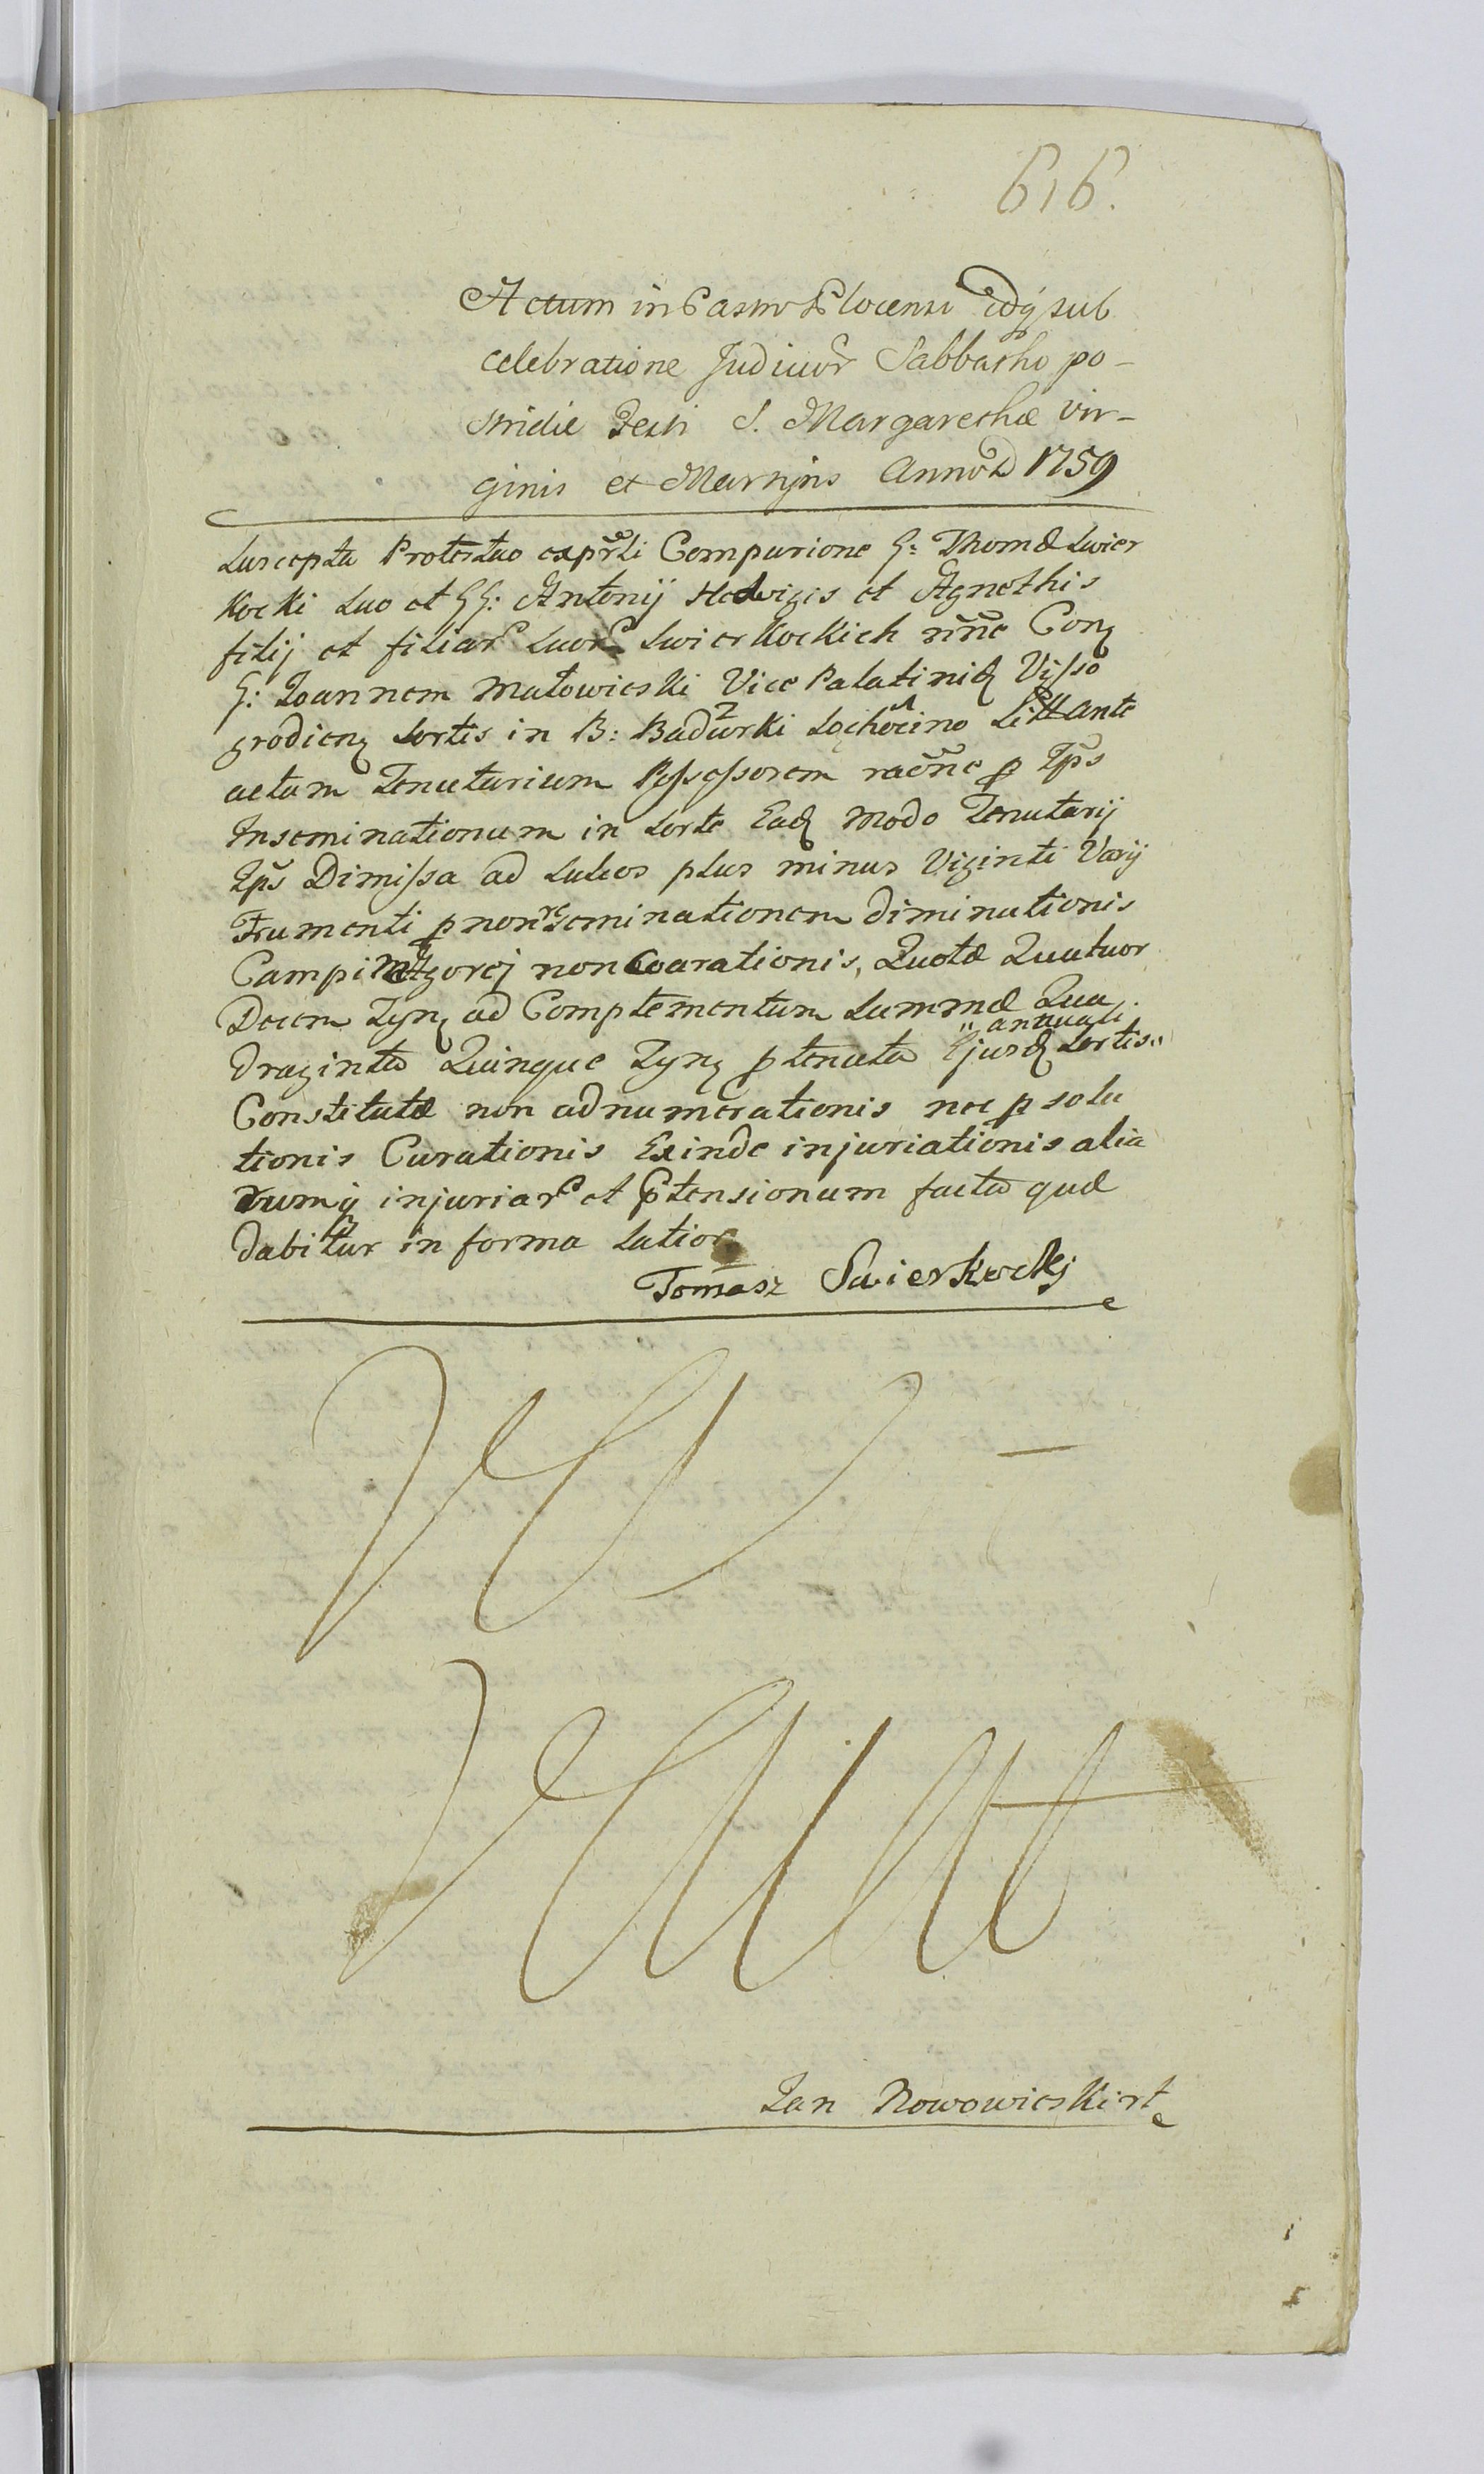 616.
Actum in Castro Plocensi idq sub
celebratione Judicior Sabbatho po-
stridie Festi S. Margarethæ Vir-
ginis et Martyris Anno D 1759
Suscepta Protestao exprsli Comparione G: Thomæ Swier
kocki suo et GG: Antonij Hedvigis et Agnethis
filij et filiar suor Swierkockich nne Conq
G: Joannem Małowieski Vice Palatinid Visso
grodienq Sortis in B: Badurki Łochocino
actum Tenutarium Possessorem raone p Ips
Inseminationum in sorte Ead Modo Tenutarij
Ips Dimissa ad Sulcos plus minus Viginti Varij
Frumenti p non seminationem diminutionis
Campi non Coarationis, Quotæ Quatuor
Decem Tynq ad Complementum Summæ Qua
draginta Quinque Tynq p tenuta annuali Ejusd Sortis
Constitutæ non adnumerationis nec p solu
tionis Curationis Exinde injuriationis alia
rumq injuriar et Ptensionum facta quæ
dabitur in forma Latior
Tomasz Swierkocky
Jan Nowowieski